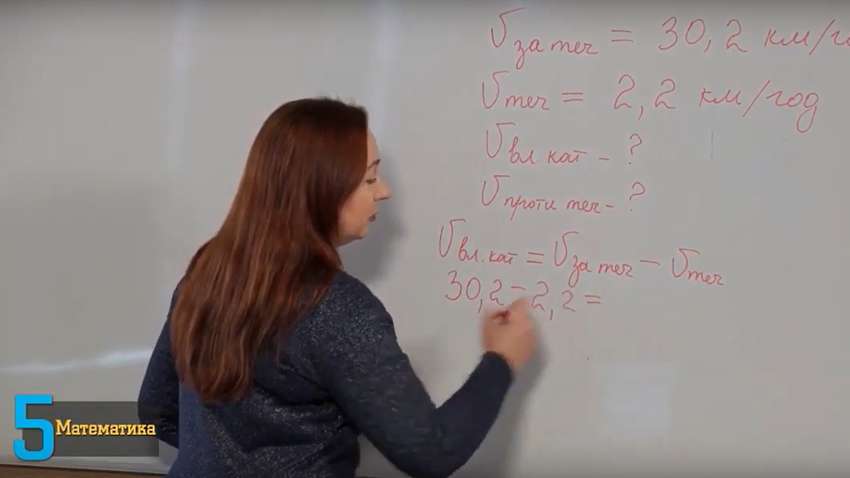 Vза теч = 30,2 км/г
Vтеч = 2,2 км/год
Vвл кат - ?
Vпроти теч - ?
Vвл.кат = Vза теч - Vтеч
30,2 - 2,2 =
5 Математика